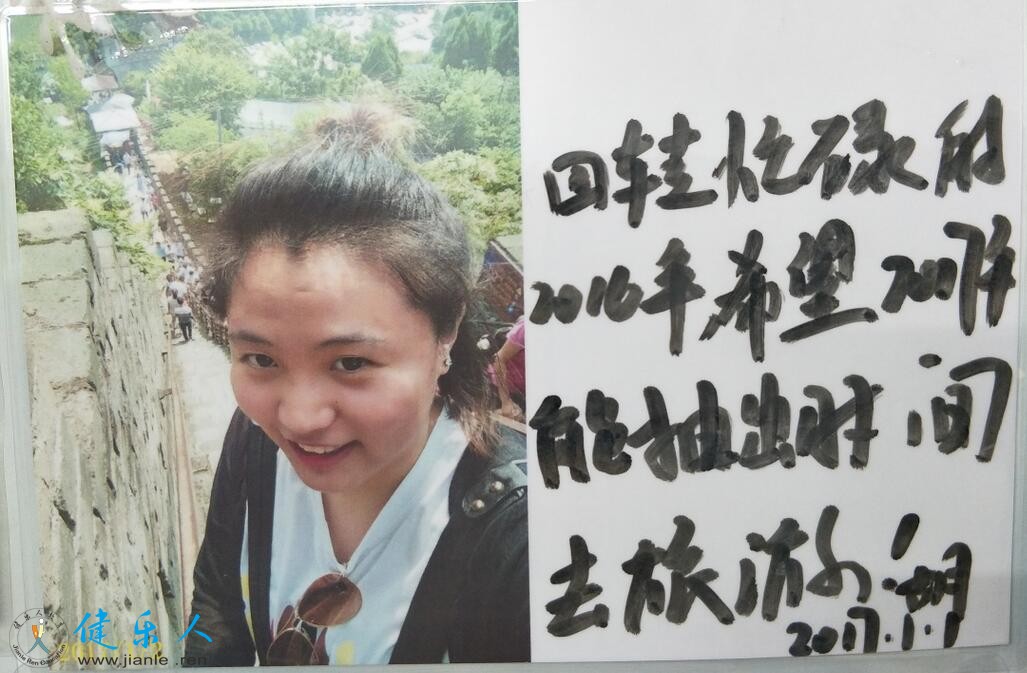 回轾忙碌的
2016年希望2017年
能抽出时间
去旅游.
2017.1.1
健乐人
www.jianle.ren